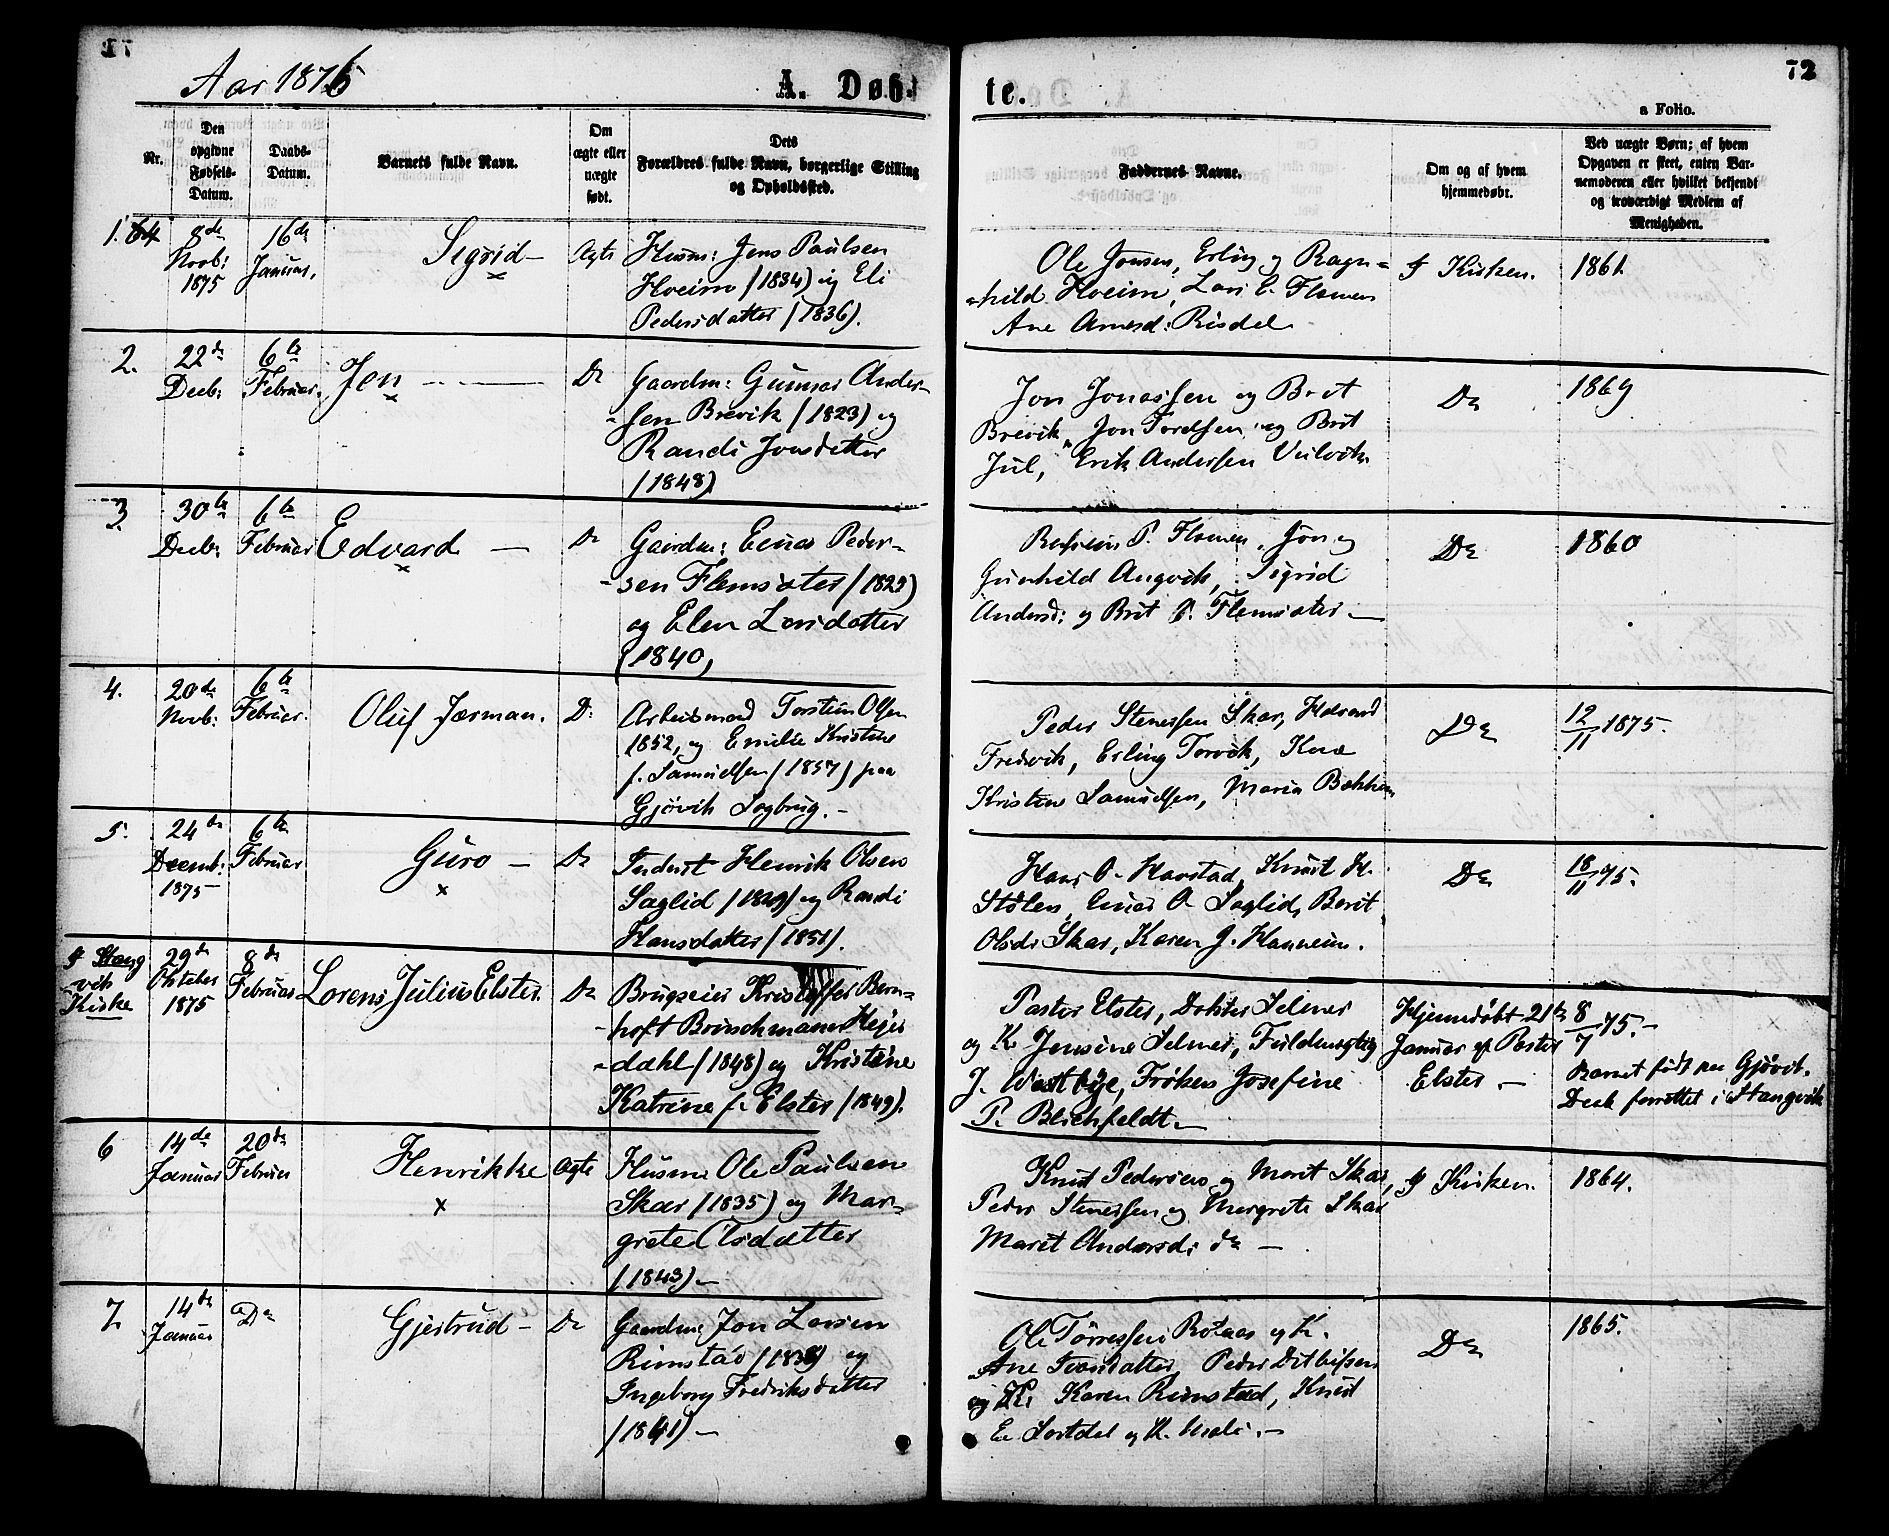 Aar 1876
A. Døb-
te.
72
a Folio.
Nr.
Den
opgivne
Fødsels-
Datum.
Daabs-
Datum.
Barnets fulde Navn.
Om
ægte eller
uægte
født.
Dets
Forældres fulde Navn, borgerlige Stilling
og Opholdssted.
Faddernes Navne.
Om og af hvem
hjemmedøbt.
Ved uægte Børn; af hvem
Opgaven er skeet, enten Bar-
nemoderen eller hvilket bekjendt
og troværdigt Medlem af
Menigheden.
1.
8de
Novb:
1875
16de
Januar.
Sigrid
Ægte
Husm: Jens Paulsen
Hoeim (1834) og Eli
Pedersdatter (1836).
Ole Jonsen, Erling og Ragn-
hild Hoeim, Lars E. Flemen
Ane Arnesd: Risdel
I Kirken.
1861.
2.
22de
Decb:
6te
Februar.
Jon
Do
Gaardm: Gunnar Ander-
sen Brevik (1823) og
Randi Jonsdatter
(1848)
Jon Jonassen og Brit
Brevik, Jon Tordsen og Brit
Jul, Erik Andersen
Do
1869
3.
30te
Decb:
6te
Februar
Edvard
Do
Gaardm: Einar Peder-
sen Flemsæter (1829)
og Elen Larsdatter
(1840)
P. Flemen, Jon og
Gunhild Angvik, Sigrid
Andersd: og Brit P. Flemsæter
Do
1860
4.
20de
Novb:
6te
Februar.
Oluf Jærman.
Do
Arbeidsmand Torstein Olsen
1852, og Emilie Kristine
f. Samuelsen (1857) paa
Gjøvik Sagbrug.
Peder Stenersen Skar, Halvard
Fredvik, Erling Torvik,
Kristine Samuelsen, Maria Bakken
Do
12/11 1875.
5.
24de
Decemb:
1875
6te
Februar
Guro
Do
Inderst Henrik Olsen
Saglid (1829) og Randi
Hansdatter (1851).
Hans O. Harstad, Knut H.
Stølen, Einar O. Saglid, Berit
Olsdr Skar, Karen J. Hanneim.
Do
18/11 75.
I Stang
vik
Kirke
29de
Oktober
1875
8de
Februar
Lorens Julius Elster.
Do
Brugseier Kristoffer Bern-
hoft Brinchmann Hejer
dahl (1848) og Kristine
Katrine f. Elster (1849).
Pastor Elster, Doktor Selmer
og K. Jensine Selmer, Fuldmægtig
J. Westbye, Frøken Josefine
P. Blichfeldt.
Hjemmedøbt 21de
Januar af Pastor
Elster
8/7 75.
Barnet født paa Gjøvik.
Daab forrettet i Stangvik
6
14de
Januar
20de
Februar
Henrikke
Ægte
Husm: Ole Paulsen
Skar (1835) og Mar-
grete Olsdatter
(1843)
Knut Pedersen og Marit Skar,
Peder Stenersen og Margrete Skar
Marit Andersd: do
I Kirken.
1864.
7
14de
Januar
Do
Gjertrud
Do
Gaardm: Jon Larsen
Rimstad (1838) og
Ingeborg Fredriksdatter
(1841)
Ole Tørresen Rotaas og K.
Ane Ivarsdatter, Peder Ditlefsen
og K. Karen Rimstad, Knut
E. og K. Mali.
Do
1865.